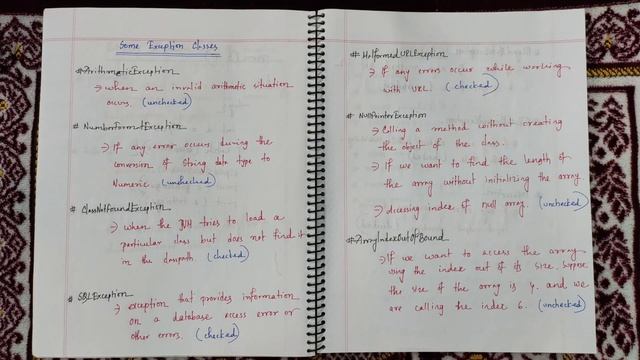 Some Exception Classes
# ArithmeticException
→ when an invalid arithmetic situation
occurs. (unchecked)
# NumberFormatException
→ If any error occurs during the
conversion of String data type to
Numeric. (unchecked)
# ClassNotFoundException
→ when the JVM tries to load a
particular class but does not find it
in the classpath. (checked)
# SQLException
→ exception that provides information
on a database access error or
other errors. (checked)
# MalformedURLException
→ If any errors occur while working
with URL. (checked)
# NullPointerException
→ Calling a method without creating
the object of the class.
→ If we want to find the length of
the array without initializing the array
→ Accessing index of null array. (unchecked)
# ArrayIndexOutOfBound
→ If we want to access the array
using the index out of its size. Suppose
the size of the array is 4. and we
are calling the index 6. (unchecked)